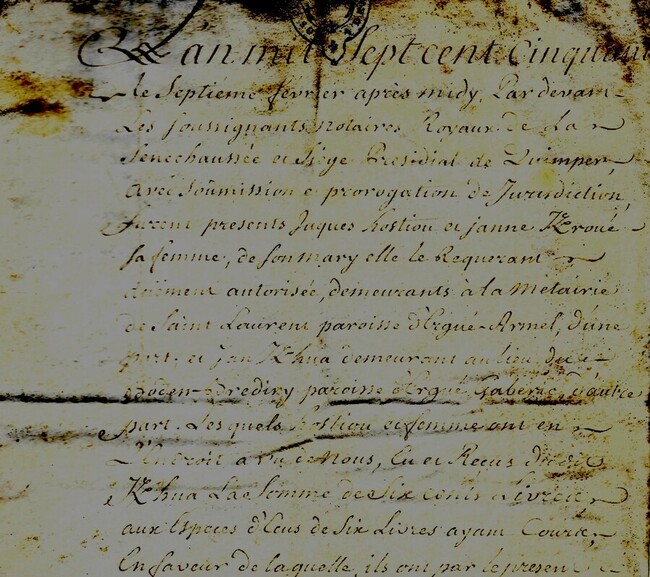 L'an mil Sept cent Cinquan
le Septieme fevrier après midy, Par devan
Les soussignants Notaires Royaux de La
Senechaussée et Siege Presidial de Quimper,
avec Soûmission e prorogation de Jurisdiction,
furent presents Jaques Kostiou et janne K/roué
sa femme, de son mary elle le Requerant
dûement autorisée, demeurants à la Metairie
de Saint Laurent paroisse d'Ergué-Armel, d'une
part, et jan K/hua demeurant au lieu du
paroisse d'Ergué Gaberic d'autre
part. Les quels Kostiou et femme ont en
L'Endroit a vu de Nous, Eu et Reçus dudit
K/hua La Somme de Six Cents Livres
aux Especes d'Ecus de Six Livres ayant Cours,
En faveur de laquelle, ils ont par le present